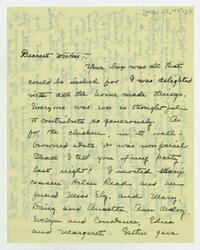 Dearest Mother,-
Your box was all that
could be asked for. I was delighted
with all the home made things.
Everyone was so thoughtful
to contribute so generously. As
for the chicken, in it's well-
browned state it was non pareil
Shall I tell you of my party
last night? I invited Mary's
cousin Helen Read, and her
friend Miss Ely, and Mary,
Daisy and Annette, Ann
Evelyn and Constance, Edna
and Margaret. Esther gave